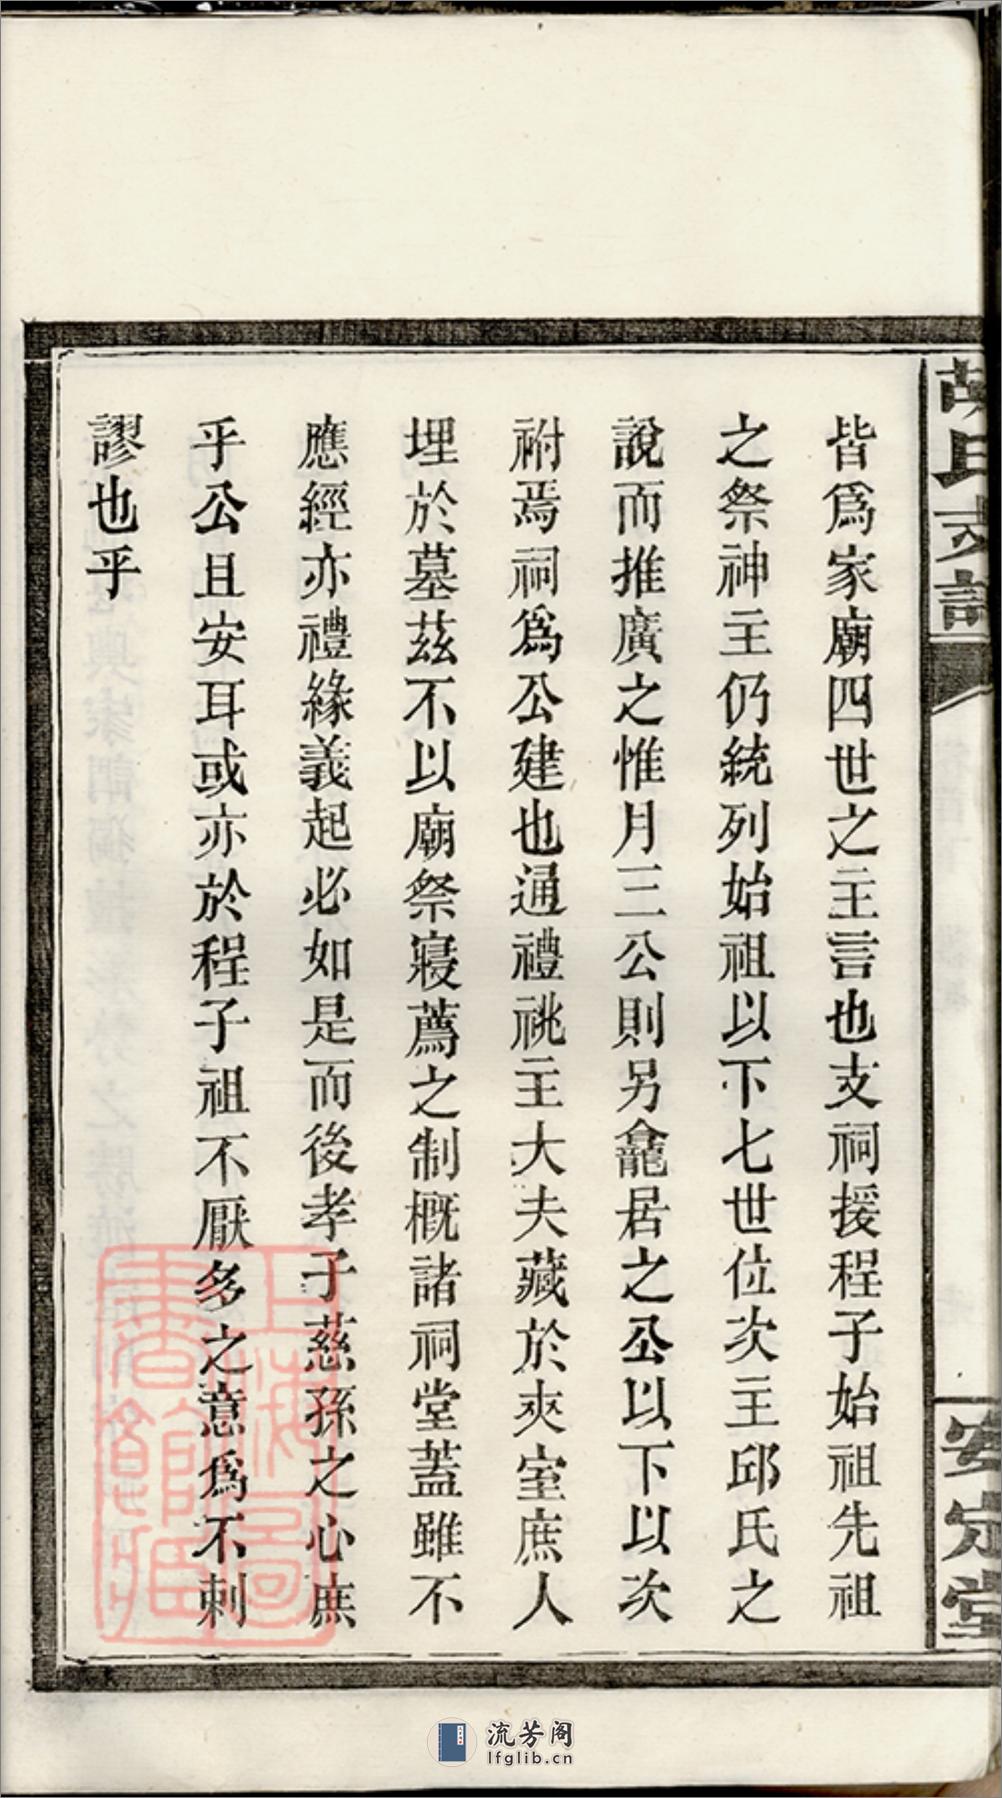 胡氏支譜
安定堂
皆爲家廟四世之主言也支祠援程子始祖先祖
之祭神主仍統列始祖以下七世位次主邱氏之
說而推廣之惟月三公則另龕居之公以下以次
祔焉祠爲公建也通禮祧主大夫藏於夾室庶人
埋於墓茲不以廟祭寢薦之制概諸祠堂蓋雖不
應經亦禮緣義起必如是而後孝子慈孫之心庶
乎公且安耳或亦於程子祖不厭多之意爲不剌
謬也乎
上海圖書館藏
流芳阁
lfglib.cn